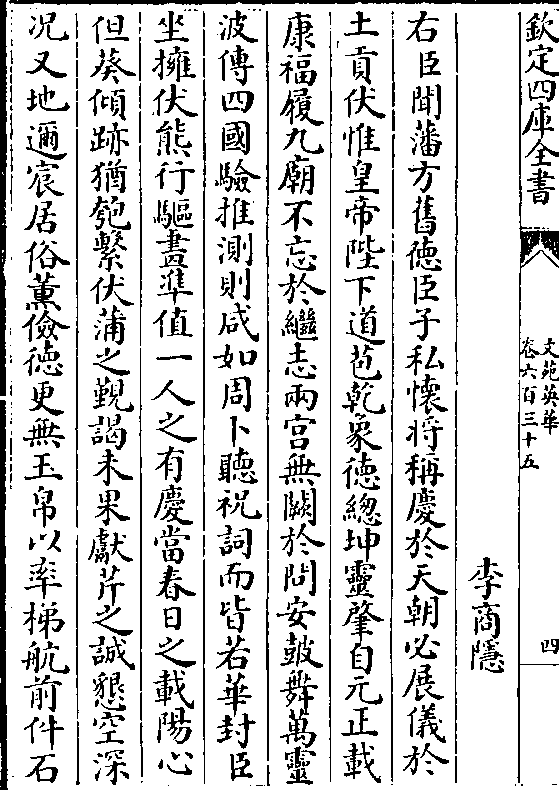 欽定四庫全書
文苑英華
卷六百三十五
四
李商隱
右臣聞藩方舊德臣子私懷將稱慶於天朝必展儀於
土貢伏惟皇帝陛下道苞乾象德總坤靈肇自元正載
康福履九廟不忘於繼志兩宫無闕於問安鼓舞萬靈
波傳四國驗推測則咸如周卜聽祝詞而皆若華封臣
坐擁伏熊行驅畫凖值一人之有慶當春日之載陽心
但葵傾跡猶匏繫伏蒲之覲謁未果獻芹之誠懇空深
况又地邇宸居俗薰儉德更無玉帛以率梯航前件石